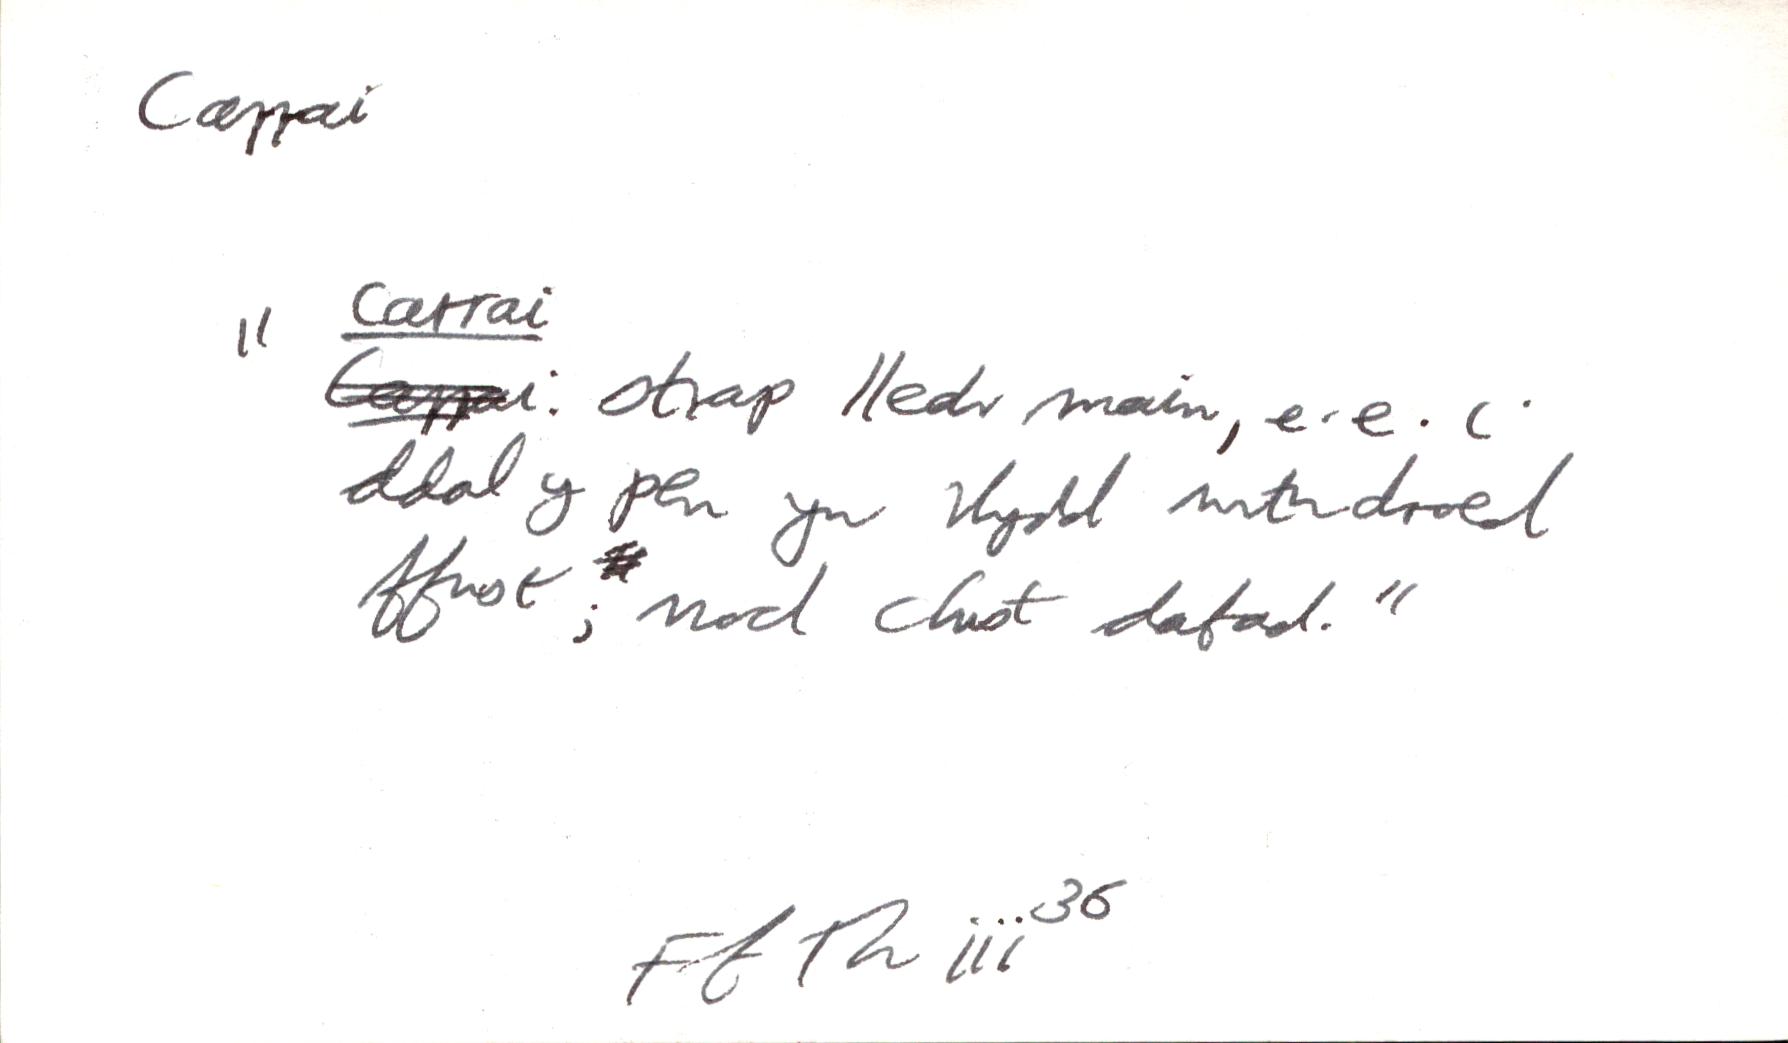 Carrai
" Carrai
: strap lledr main, e.e. i
ddal y pen yn rhydd wrth droed
ffust ; nod clust dafad. "
Ff Th iii 36